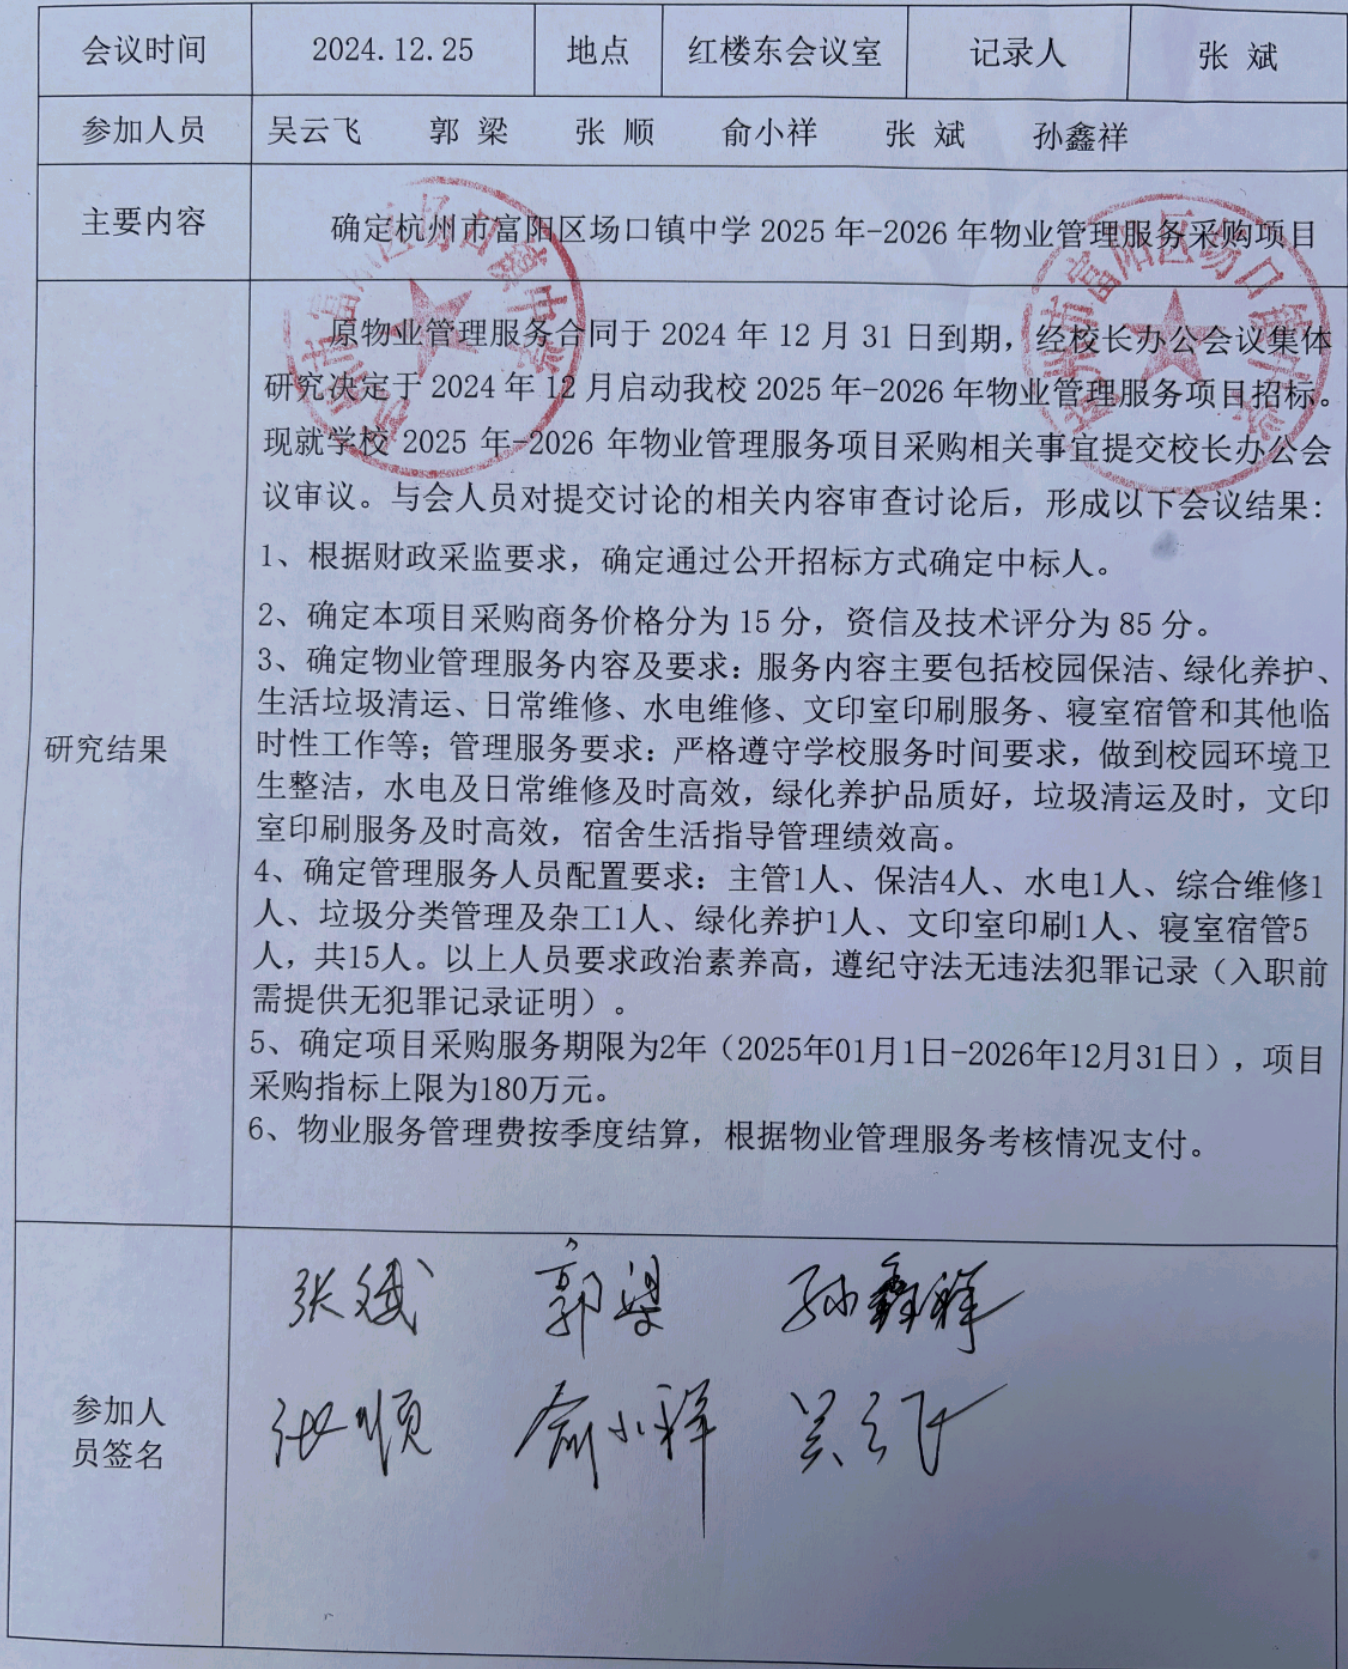 会议时间 2024.12.25 地点 红楼东会议室 记录人 张 斌
参加人员 吴云飞 郭 梁 张 顺 俞小祥 张 斌 孙鑫祥
主要内容 确定杭州市富阳区场口镇中学 2025 年-2026 年物业管理服务采购项目
研究结果
原物业管理服务合同于 2024 年 12 月 31 日到期，经校长办公会议集体
研究决定于 2024 年 12 月启动我校 2025 年-2026 年物业管理服务项目招标。
现就学校 2025 年-2026 年物业管理服务项目采购相关事宜提交校长办公会
议审议。与会人员对提交讨论的相关内容审查讨论后，形成以下会议结果：
1、根据财政采监要求，确定通过公开招标方式确定中标人。
2、确定本项目采购商务价格分为 15 分，资信及技术评分为 85 分。
3、确定物业管理服务内容及要求：服务内容主要包括校园保洁、绿化养护、
生活垃圾清运、日常维修、水电维修、文印室印刷服务、寝室宿管和其他临
时性工作等；管理服务要求：严格遵守学校服务时间要求，做到校园环境卫
生整洁，水电及日常维修及时高效，绿化养护品质好，垃圾清运及时，文印
室印刷服务及时高效，宿舍生活指导管理绩效高。
4、确定管理服务人员配置要求：主管1人、保洁4人、水电1人、综合维修1
人、垃圾分类管理及杂工1人、绿化养护1人、文印室印刷1人、寝室宿管5
人，共15人。以上人员要求政治素养高，遵纪守法无违法犯罪记录（入职前
需提供无犯罪记录证明）。
5、确定项目采购服务期限为2年（2025年01月1日-2026年12月31日），项目
采购指标上限为180万元。
6、物业服务管理费按季度结算，根据物业管理服务考核情况支付。
参加人
员签名
张斌 郭梁 孙鑫祥
张顺 俞小祥 吴云飞
杭州市富阳区场口镇中学
杭州市富阳区场口镇中学